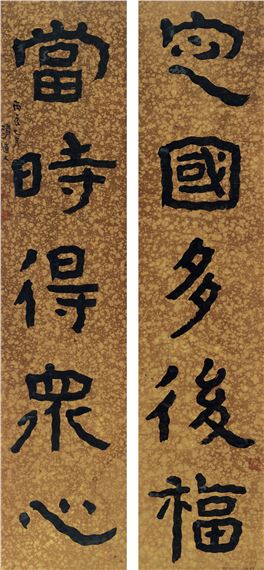 定國多後福
當時得眾心